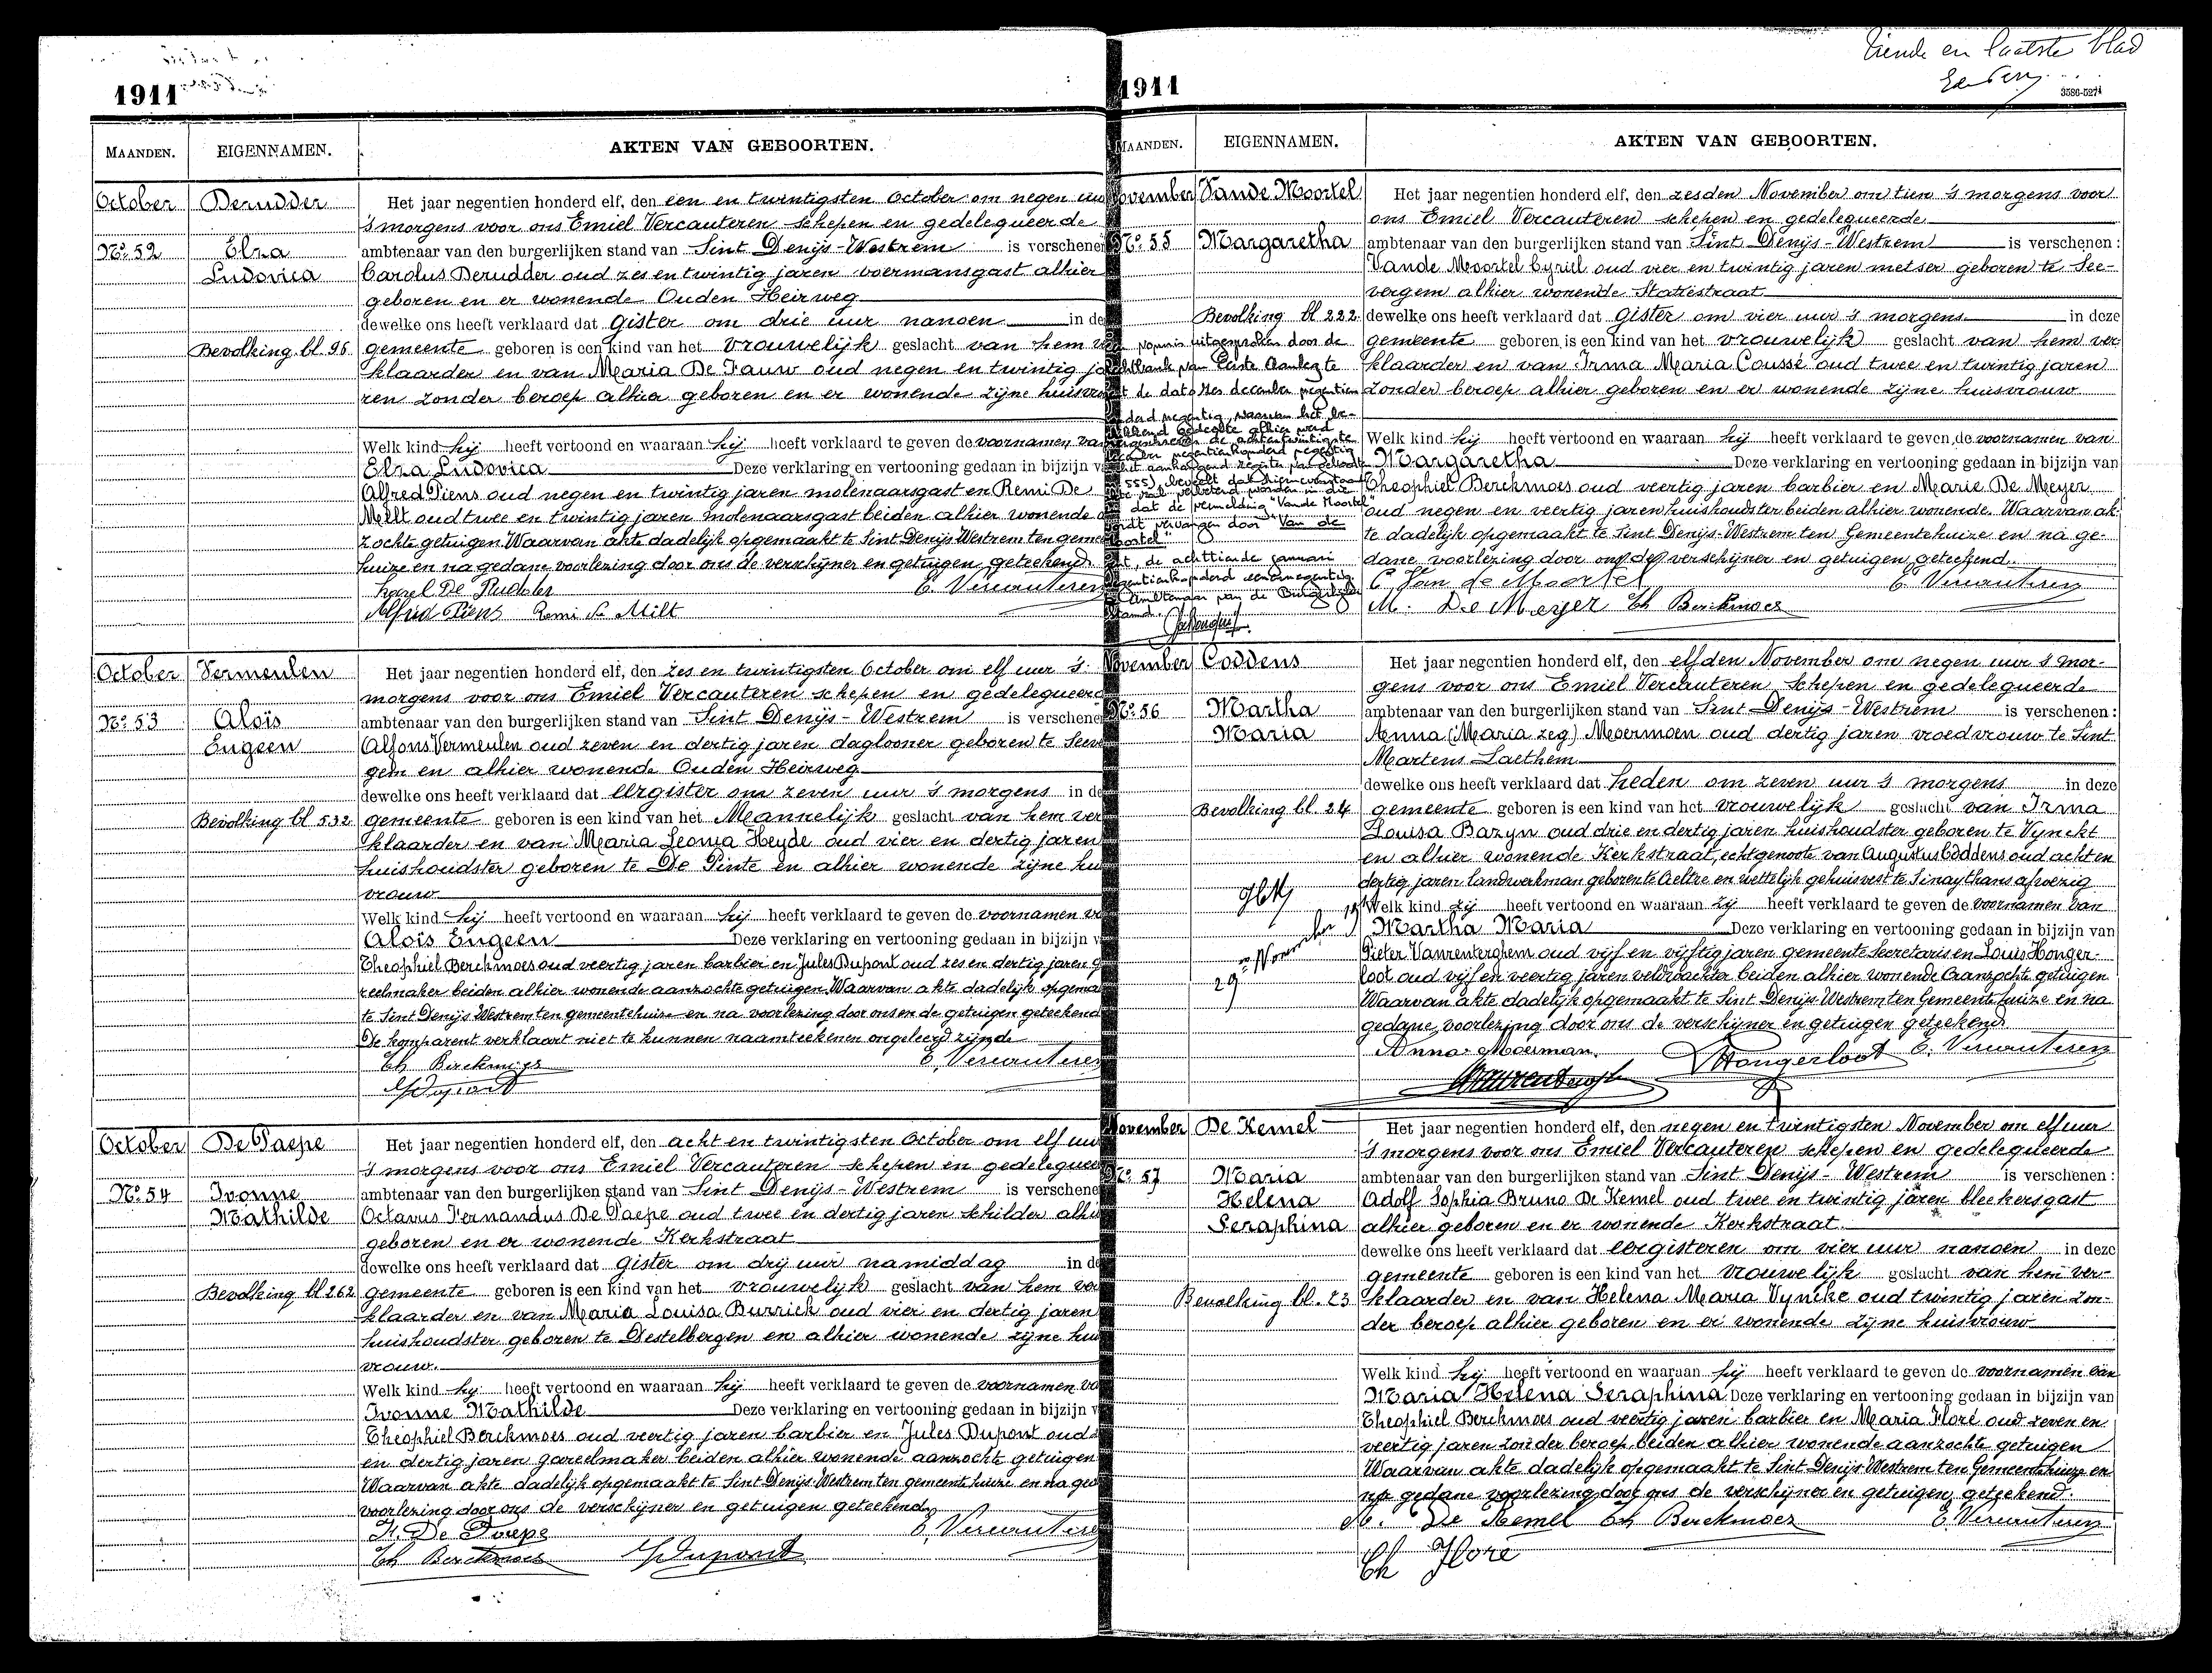 1911
MAANDEN. EIGENNAMEN. AKTEN VAN GEBOORTEN.
October Derudder
No 52 Elza
Ludovica
Bevolking bl 96
Het jaar negentien honderd elf, den een en twintigsten October om negen uu
's morgens voor ons Emiel Vercauteren schepen en gedelegueerde
ambtenaar van den burgerlijken stand van Sint Denijs-Westrem is verschenen
Carolus Derudder oud zes en twintig jaren voermansgast alhier
geboren en er wonende Ouden Heirweg
dewelke ons heeft verklaard dat gister om drie uur nanoen in de
gemeente geboren is een kind van het vrouwelijk geslacht van hem
klaarder en van Maria De Pauw oud negen en twintig ja
ren zonder beroep alhier geboren en er wonende zijne huisv
Welk kind hij heeft vertoond en waaraan hij heeft verklaard te geven de voornamen va
Elza Ludovica Deze verklaring en vertooning gedaan in bijzijn v
Alfred Piens oud negen en twintig jaren molenaarsgast en Remi De
Milt oud twee en twintig jaren molenaarsgast beiden alhier wonende a
zochte getuigen Waarvan akte dadelijk opgemaakt te Sint Denijs Westrem ten geme
huize en na gedane voorlezing door ons de verschijner en getuigen geteekend
Karel De Rudder E. Vercauteren
Alfred Piens Remi De Milt
October Vermeulen
No 53 Aloïs
Eugeen
Bevolking bl 532
Het jaar negentien honderd elf, den zes en twintigsten October om elf uur 's
morgens voor ons Emiel Vercauteren schepen en gedelegueerd
ambtenaar van den burgerlijken stand van Sint Denijs-Westrem is verschene
Alfons Vermeulen oud zeven en dertig jaren daglooner geboren te Seev
gem en alhier wonende Ouden Heirweg
dewelke ons heeft verklaard dat eergister om zeven uur 's morgens in de
gemeente geboren is een kind van het Mannelijk geslacht van hem ver
klaarder en van Maria Leonia Heyde oud vier en dertig jaren
huishoudster geboren te De Pinte en alhier wonende zijne hui
vrouw
Welk kind hij heeft vertoond en waaraan hij heeft verklaard te geven de voornamen v
Aloïs Eugeen Deze verklaring en vertooning gedaan in bijzijn v
Theophiel Berckmoes oud veertig jaren barbier en Jules Dupont oud zes en dertig jaren g
reelmaker beiden alhier wonende aanzochte getuigen Waarvan akte dadelijk opgema
te Sint Denijs Westrem ten gemeentehuize en na voorlezing door ons en de getuigen geteekend
De komparent verklaart niet te kunnen naamteekenen ongeleerd zijnde
Th Berckmoes E. Vercauteren
J Dupont
October De Paepe
No 54 Ivonne
Mathilde
Bevolking bl 262
Het jaar negentien honderd elf, den acht en twintigsten October om elf uu
's morgens voor ons Emiel Vercauteren schepen en gedeleguee
ambtenaar van den burgerlijken stand van Sint Denijs-Westrem is verschene
Octavus Fernandus De Paepe oud twee en dertig jaren schilder alhi
geboren en er wonende Kerkstraat
dewelke ons heeft verklaard dat gister om drij uur namiddag in de
gemeente geboren is een kind van het vrouwelijk geslacht van hem ver
klaarder en van Maria Louisa Burrick oud vier en dertig jaren
huishoudster geboren te Destelbergen en alhier wonende zijne hui
vrouw.
Welk kind hij heeft vertoond en waaraan hij heeft verklaard te geven de voornamen va
Ivonne Mathilde Deze verklaring en vertooning gedaan in bijzijn v
Theophiel Berckmoes oud veertig jaren barbier en Jules Dupont oud
en dertig jaren gareelmaker beiden alhier wonende aanzochte getuigen
Waarvan akte dadelijk opgemaakt te Sint Denijs-Westrem ten gemeente huize en na ged
voorlezing door ons de verschijner en getuigen geteekend
F. De Paepe E. Vercauteren
Th Berckmoes J Dupont
tiende en laatste blad
1911
3586-5274
MAANDEN. EIGENNAMEN. AKTEN VAN GEBOORTEN.
November Vande Moortel
No 55 Margaretha
Bevolking bl 222
vonnis uitgesproken door de
rechtbank van Eerste Aanleg te
de dato zes december negentien
honderd negentig, waarvan het be-
schikkend gedeelte alhier werd
de achtentwintigste
negentienhonderd negentig
in het aanhangend register van geboorte
555), beveelt dat
zal verbeterd worden in die
zin dat de vermelding "Vande Moortel"
wordt vervangen door "Van de
Moortel"
de achttiende januari
negentienhonderd eenennegentig
Ambtenaar van de Burgerlijke
Stand.
Het jaar negentien honderd elf, den zesden November om tien 's morgens voor
ons Emiel Vercauteren schepen en gedelegueerde
ambtenaar van den burgerlijken stand van Sint Denijs-Westrem is verschenen:
Vande Moortel Cyriel oud vier en twintig jaren metser geboren te See-
vergem alhier wonende Statiestraat
dewelke ons heeft verklaard dat gister om vier uur 's morgens in deze
gemeente geboren is een kind van het vrouwelijk geslacht van hem ver-
klaarder en van Irma Maria Coussé oud twee en twintig jaren
zonder beroep alhier geboren en er wonende zijne huisvrouw
Welk kind hij heeft vertoond en waaraan hij heeft verklaard te geven de voornamen van
Margaretha Deze verklaring en vertooning gedaan in bijzijn van
Theophiel Berckmoes oud veertig jaren barbier en Marie De Meyer
oud negen en veertig jaren huishoudster beiden alhier wonende. Waarvan ak-
te dadelijk opgemaakt te Sint Denijs-Westrem ten Gemeentehuize en na ge-
dane voorlezing door ons de verschijner en getuigen geteekend.
C. Van de Moortel E. Vercauteren
M. De Meyer Th Berckmoes
November Coddens
No 56 Martha
Maria
Bevolking bl. 24
29 November
Het jaar negentien honderd elf, den elfden November om negen uur 's mor-
gens voor ons Emiel Vercauteren schepen en gedelegueerde
ambtenaar van den burgerlijken stand van Sint-Denijs-Westrem is verschenen:
Anna (Maria zeg) Moermoen oud dertig jaren vroedvrouw te Sint
Martens Laethem
dewelke ons heeft verklaard dat heden om zeven uur 's morgens in deze
gemeente geboren is een kind van het vrouwelijk geslacht van Irma
Louisa Bazyn oud drie en dertig jaren huishoudster geboren te Vynckt
en alhier wonende Kerkstraat, echtgenoote van Augustus Coddens oud acht en
dertig jaren landwerkman geboren te Aeltre en wettelijk gehuisvest te Sinay thans afwezig
Welk kind zij heeft vertoond en waaraan zij heeft verklaard te geven de voornamen van
Martha Maria Deze verklaring en vertooning gedaan in bijzijn van
Pieter Vanrenterghem oud vijf en vijftig jaren gemeente Secretaris en Louis Honger-
loot oud vijf en veertig jaren veldwachter beiden alhier wonende aanzochte getuigen
Waarvan akte dadelijk opgemaakt te Sint Denijs-Westrem ten Gemeentehuize en na
gedane voorlezing door ons de verschijner en getuigen geteekend
Anna Moerman. Hongerloot E. Vercauteren
November De Kemel
No 57 Maria
Helena
Seraphina
Bevolking bl. 23
Het jaar negentien honderd elf, den negen en twintigsten November om elf uur
's morgens voor ons Emiel Vercauteren schepen en gedelegueerde
ambtenaar van den burgerlijken stand van Sint Denijs-Westrem is verschenen:
Adolf Sophia Bruno De Kemel oud twee en twintig jaren bleekersgast
alhier geboren en er wonende Kerkstraat
dewelke ons heeft verklaard dat eergisteren om vier uur nanoen in deze
gemeente geboren is een kind van het vrouwelijk geslacht van hem ver-
klaarder en van Helena Maria Vyncke oud twintig jaren zon-
der beroep alhier geboren en er wonende zijne huisvrouw
Welk kind hij heeft vertoond en waaraan hij heeft verklaard te geven de voornamen van
Maria Helena Seraphina Deze verklaring en vertooning gedaan in bijzijn van
Theophiel Berckmoes oud veertig jaren barbier en Maria Floré oud zeven en
veertig jaren zonder beroep beiden alhier wonende aanzochte getuigen
Waarvan akte dadelijk opgemaakt te Sint Denijs-Westrem ten Gemeentehuize en
na gedane voorlezing door ons de verschijner en getuigen geteekend.
De Kemel Th Berckmoes E. Vercauteren
Floré